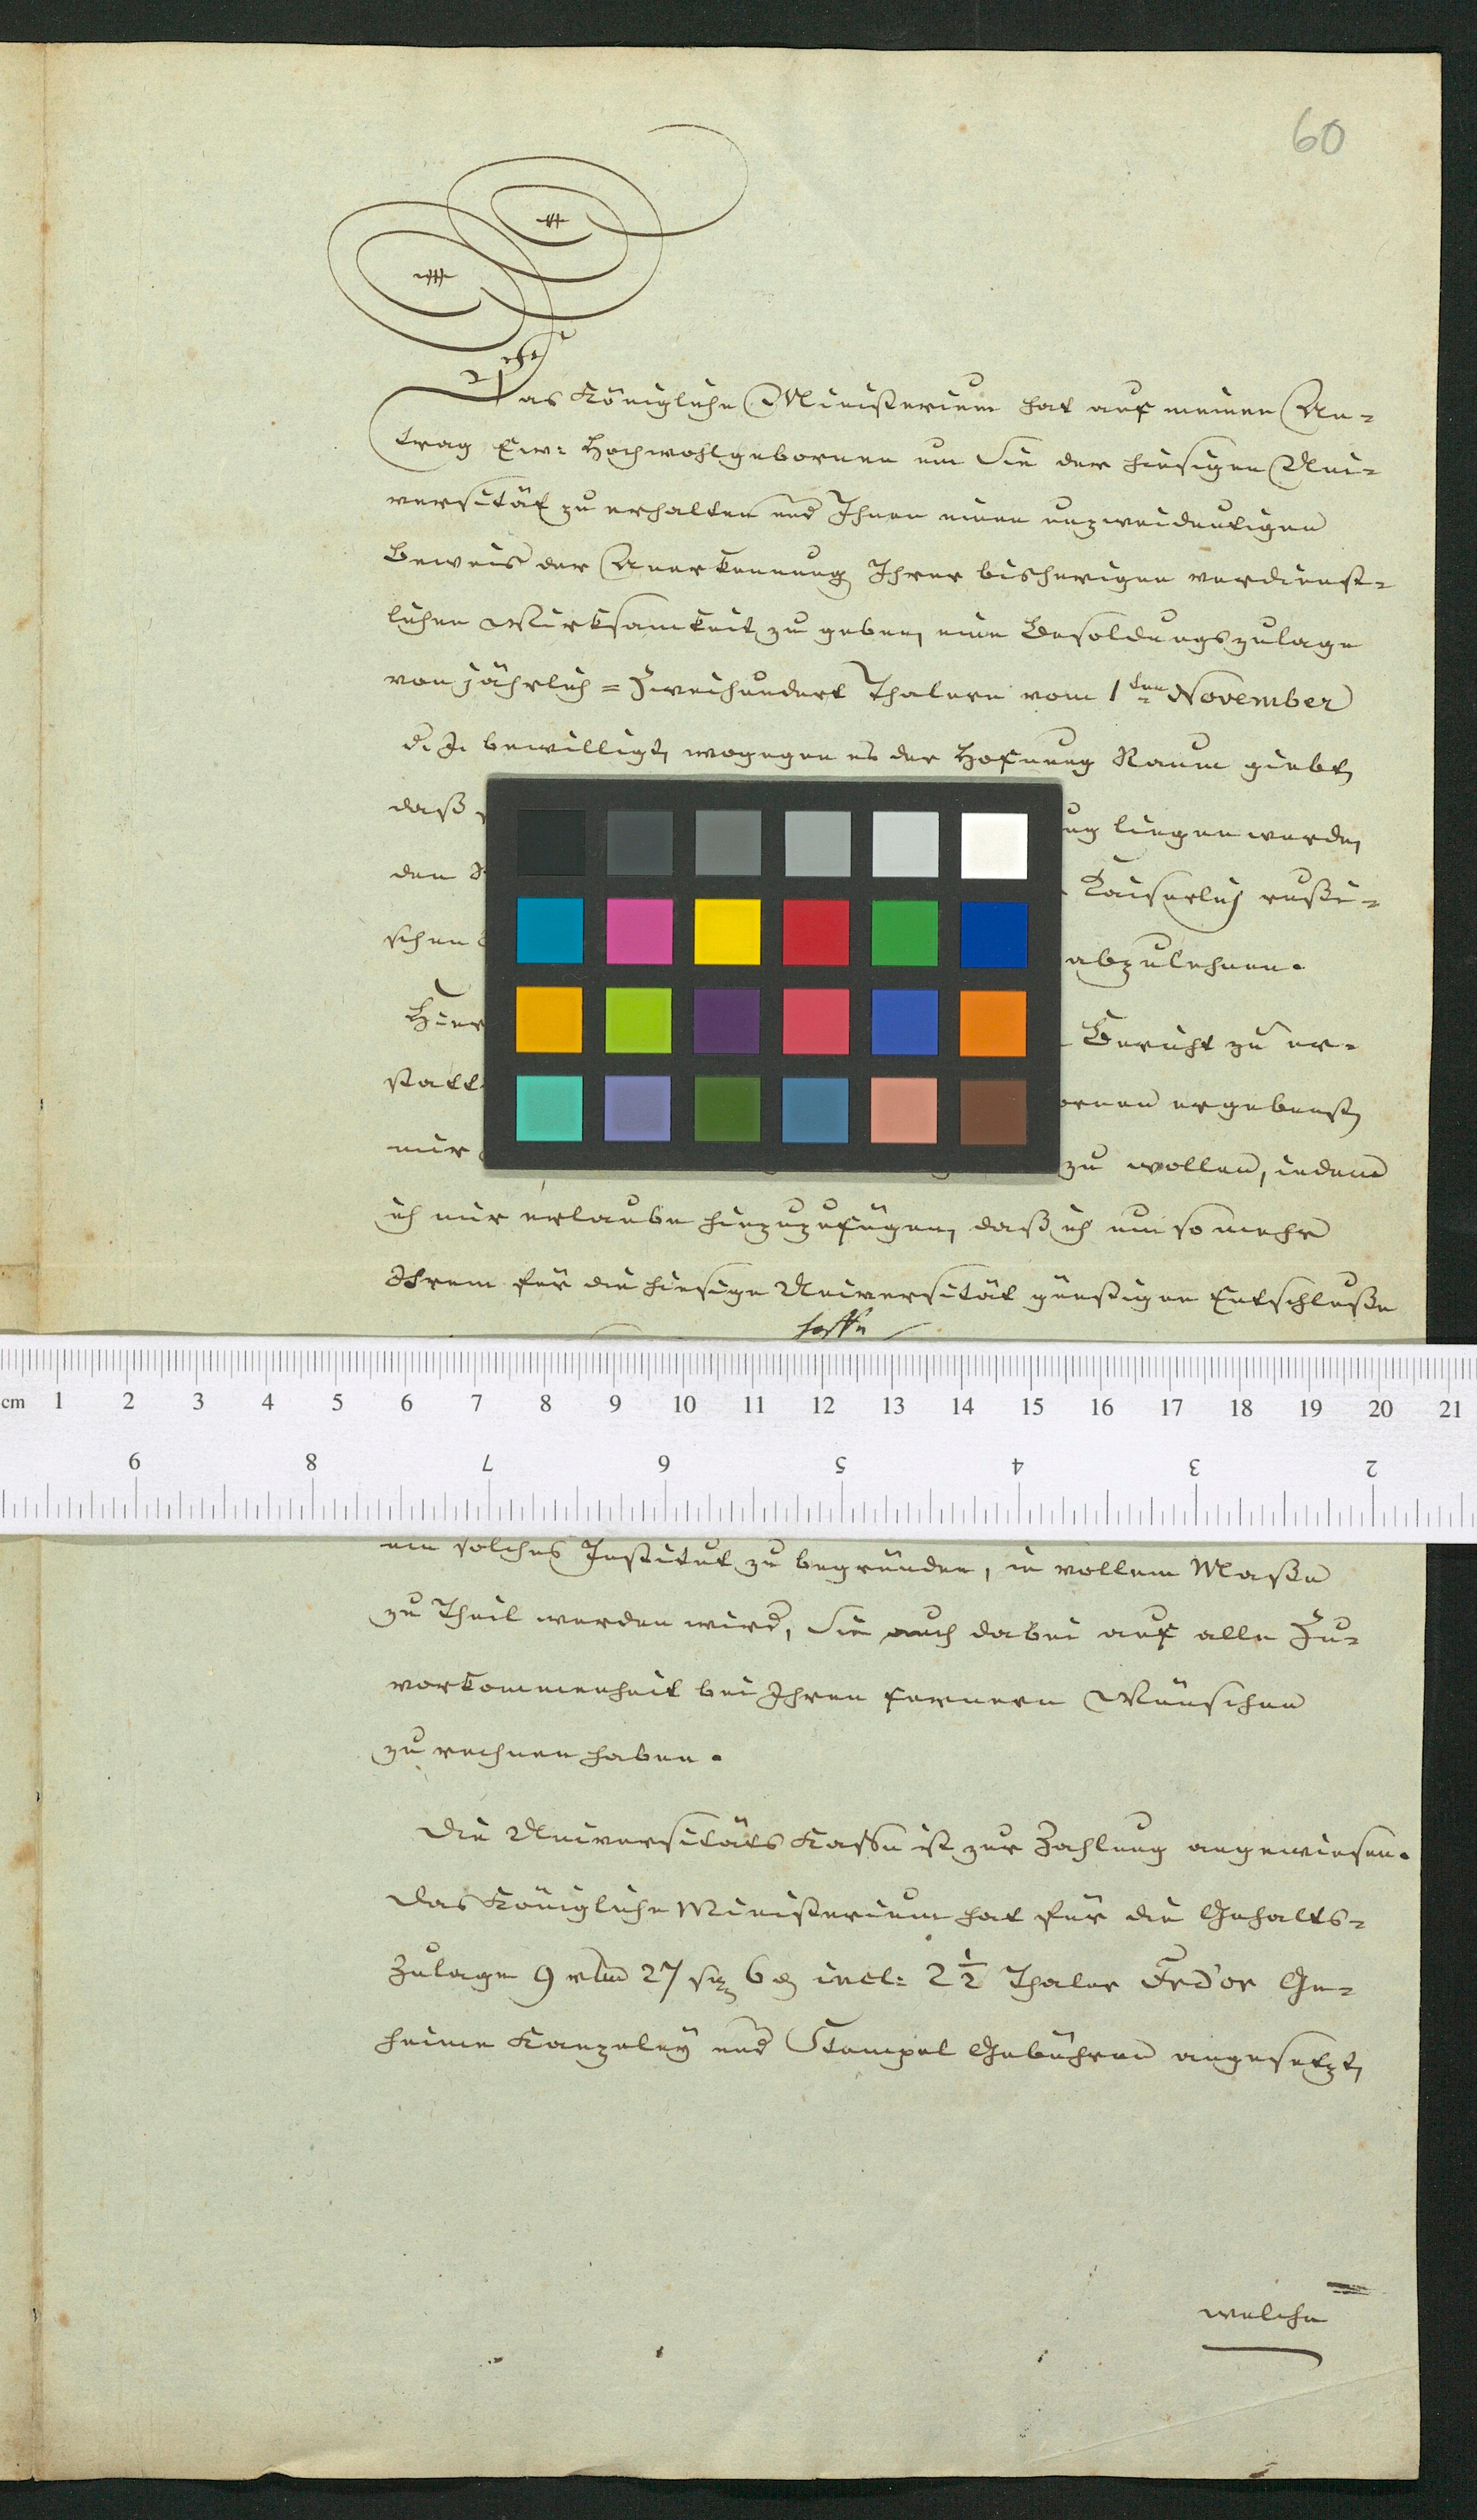 60
Das Königliche Ministerium hat auf meinen An-
trag Ew: Hochwohlgebornen um Sie der hiesigen Uni-
versität zu erhalten und Ihnen einen unzweideutigen
Beweis der Anerkennung Ihrer bisherigen verdienst-
lichen Wirksamkeit zu geben, eine Besoldungszulage
von jährlich = Zweihundert Thalern vom 1ten November
d. J. bewilligt, wogegen es der Hofnung Raum giebt,
daß ung liegen werde,
den Kaiserlich rußi-
schen abzulehnen.
Hier Bericht zu er-
statt ornen ergebenst,
mir zu wollen, indem
ich mir erlaube hinzuzufügen, daß ich um so mehr
Ihrem für die hiesige Universität günstigen Entschluße
hoffe
cm 1 2 3 4 5 6 7 8 9 10 11 12 13 14 15 16 17 18 19 20 21
9 8 7 6 5 4 3 2
ein solches Institut zu begründen, in vollem Maße
zu Theil werden wird, Sie auch dabei auf alle Zu-
vorkommenheit bei Ihren fernern Wünschen
zu rechnen haben.
Die Universitäts Kasse ist zur Zahlung angewiesen.
Das Königliche Ministerium hat für die Gehalts-
Zulage 9 rthl 27 sg 6 d incl: 2 1/2 Thaler Frd'or Ge-
heime Kanzeley und Stempel Gebühren angesetzt,
welche